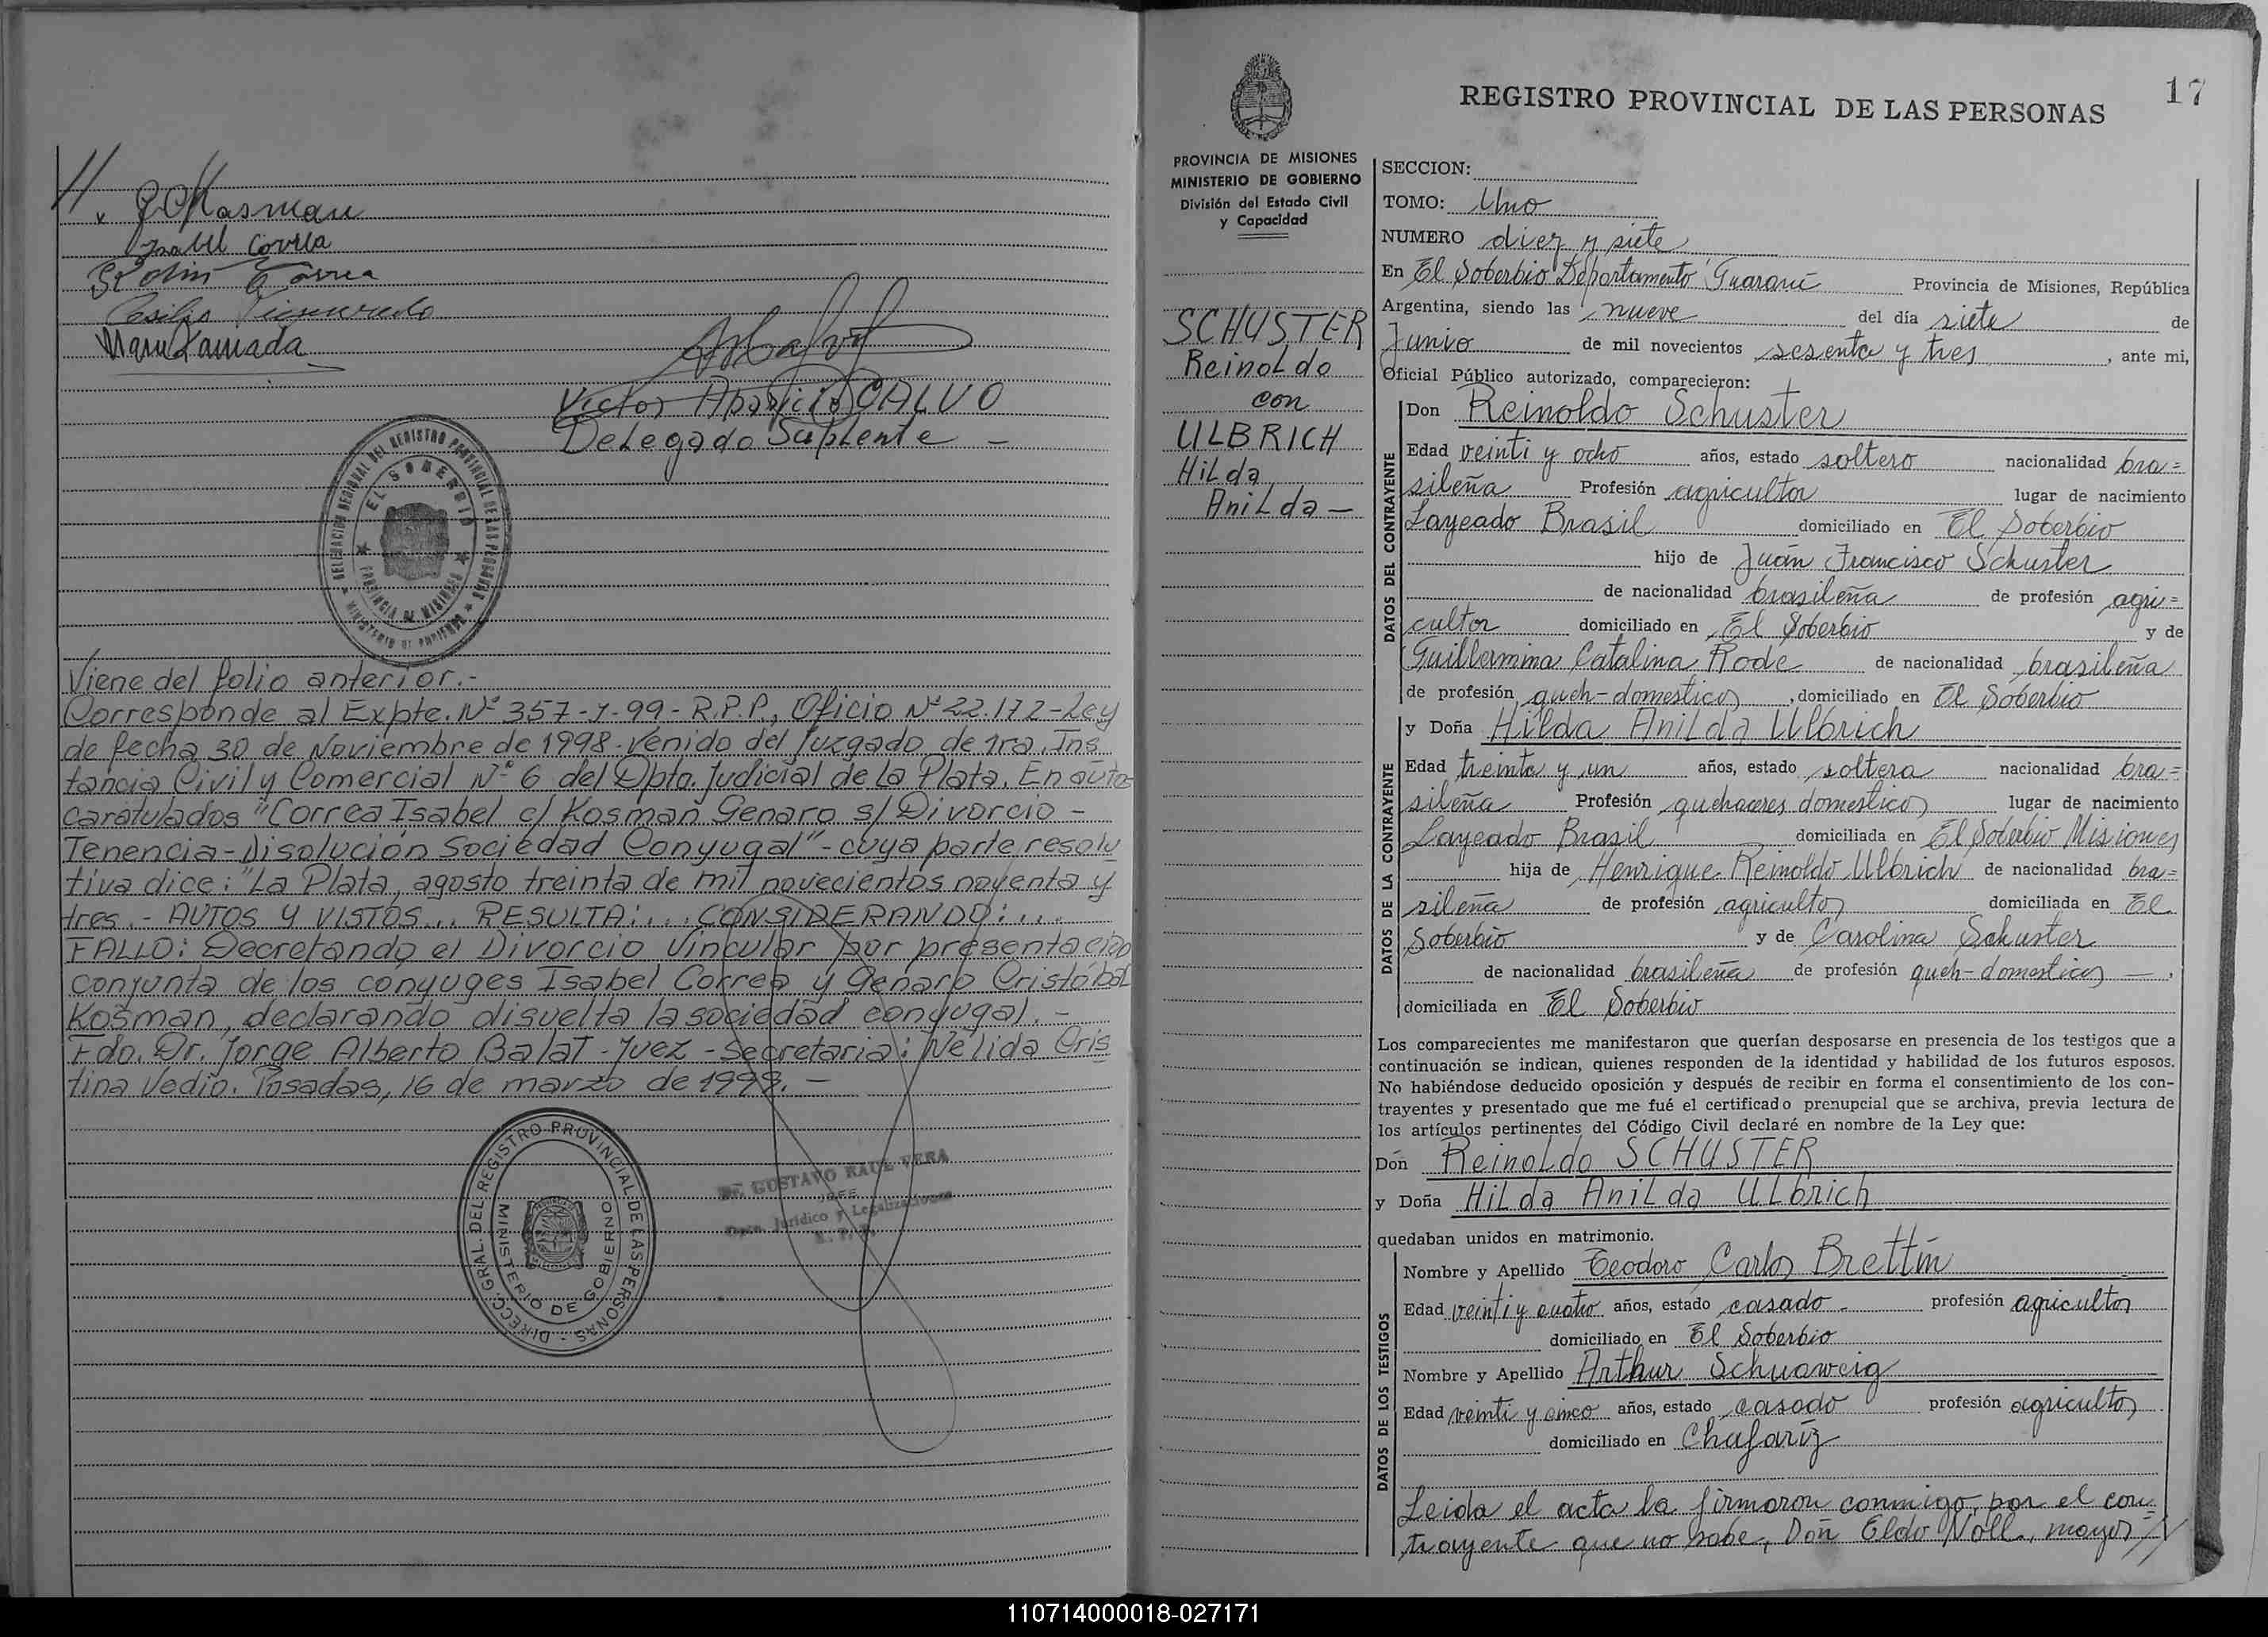 //.
G C Kosman
Isabel Correa
Correa
Maru Kamada
Victor Aparicio CALVO
Delegado Suplente -
DELEGACIÓN REGIONAL DEL REGISTRO PROVINCIAL DE LAS PERSONAS
EL SOBERBIO
PROVINCIA DE MISIONES
MINISTERIO DE GOBIERNO
Viene del folio anterior.-
Corresponde al Expte. Nº 357-y-99-R.P.P., Oficio Nº 22.172-Ley
de fecha 30 de Noviembre de 1998. Venido del Juzgado de 1ra. Ins
tancia Civil y Comercial Nº 6 del Dpto. Judicial de La Plata. En autos
caratulados "Correa Isabel c/ Kosman Genaro s/ Divorcio -
Tenencia - Disolución Sociedad Conyugal" - cuya parte resolu
tiva dice: "La Plata, agosto treinta de mil novecientos noventa y
tres.- AUTOS Y VISTOS... RESULTA:.... CONSIDERANDO:...
FALLO: Decretando el Divorcio Vincular por presentación
conjunta de los conyuges Isabel Correa y Genaro Cristóbal
Kosman, declarando disuelta la sociedad conyugal. -
Fdo. Dr. Jorge Alberto Balat - Juez - Secretaria: Nélida Cris
tina Vedio. Posadas, 16 de marzo de 1999. -
DIRECC. GRAL. DEL REGISTRO PROVINCIAL DE LAS PERSONAS -
MINISTERIO DE GOBIERNO
GUSTAVO RAUL VERA
JEFE
Dpto. Jurídico y Legalizaciones
R. P. P.
17
REGISTRO PROVINCIAL DE LAS PERSONAS
PROVINCIA DE MISIONES
MINISTERIO DE GOBIERNO
División del Estado Civil
y Capacidad
SCHUSTER
Reinoldo
con
ULBRICH
Hilda
Anilda -
SECCION:
TOMO: Uno
NUMERO diez y siete
En El Soberbio Departamento Guaraní Provincia de Misiones, República
Argentina, siendo las nueve del día siete de
Junio de mil novecientos sesenta y tres, ante mi,
Oficial Público autorizado, comparecieron:
DATOS DEL CONTRAYENTE
Don Reinoldo Schuster
Edad veinti y ocho años, estado soltero nacionalidad bra=
sileña Profesión agricultor lugar de nacimiento
Layeado Brasil domiciliado en El Soberbio
hijo de Juán Francisco Schuster
de nacionalidad brasileña de profesión agri=
cultor domiciliado en El Soberbio y de
Guillermina Catalina Rode de nacionalidad brasileña
de profesión queh-domesticos, domiciliado en El Soberbio
DATOS DE LA CONTRAYENTE
y Doña Hilda Anilda Ulbrich
Edad treinta y un años, estado soltera nacionalidad bra=
sileña Profesión quehaceres domesticos lugar de nacimiento
Layeado Brasil domiciliada en El Soberbio Misiones
hija de Henrique Reinoldo Ulbrich de nacionalidad bra=
sileña de profesión agricultor domiciliada en El
Soberbio y de Carolina Schuster
de nacionalidad brasileña de profesión queh-domesticos -,
domiciliada en El Soberbio
Los comparecientes me manifestaron que querían desposarse en presencia de los testigos que a
continuación se indican, quienes responden de la identidad y habilidad de los futuros esposos.
No habiéndose deducido oposición y después de recibir en forma el consentimiento de los con-
trayentes y presentado que me fué el certificado prenupcial que se archiva, previa lectura de
los artículos pertinentes del Código Civil declaré en nombre de la Ley que:
Don Reinoldo SCHUSTER
y Doña Hilda Anilda Ulbrich
quedaban unidos en matrimonio.
DATOS DE LOS TESTIGOS
Nombre y Apellido Teodoro Carlos Brettin
Edad veinti y cuatro años, estado casado - profesión agricultor
domiciliado en El Soberbio
Nombre y Apellido Arthur Schuaweig
Edad veinti y cinco años, estado casado profesión agricultor
domiciliado en Chafariz
Leida el acta la firmaron conmigo, por el con=
trayente que no sabe, Don Eldo Noll, mayor //
110714000018-027171